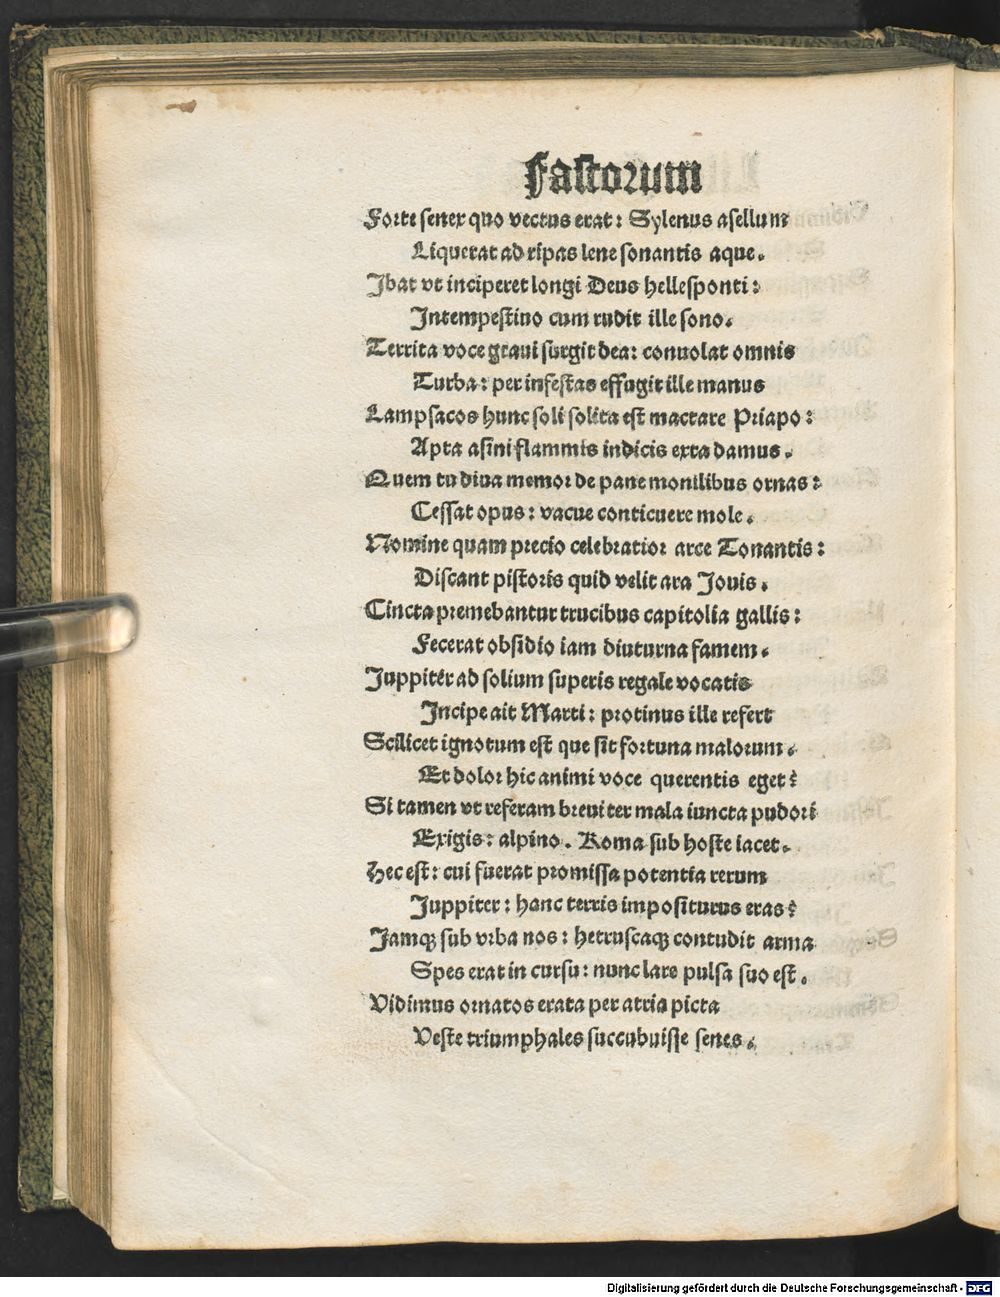 Fastorum
Forte senex quo vectus erat: Sylenus asellum
Liquerat ad ripas lene sonantis aque.
Ibat vt inciperet longi Deus hellesponti:
Intempestiuo cum rudit ille sono.
Territa voce graui surgit dea: conuolat omnis
Turba: per infestas effugit ille manus
Lampsacos hunc soli solita est mactare Priapo:
Apta asini flammis indicis exta damus.
Quem tu diua memor de pane monilibus ornas:
Cessat opus: vacue conticuere mole.
Nomine quam precio celebratior arce Tonantis:
Discant pistoris quid velit ara Iouis.
Cincta premebantur trucibus capitolia gallis:
Fecerat obsidio iam diuturna famem.
Iuppiter ad solium superis regale vocatis
Incipe ait Marti: protinus ille refert
Scilicet ignotum est que sit fortuna malorum.
Et dolor hic animi voce querentis eget?
Si tamen vt referam breuiter mala iuncta pudori
Exigis: alpino. Roma sub hoste iacet.
Hec est: cui fuerat promissa potentia rerum
Juppiter: hanc terris impositurus eras?
Jamqꝫ sub vrba nos: hetruscaqꝫ contudit arma
Spes erat in cursu: nunc lare pulsa suo est.
Vidimus ornatos erata per atria picta
Veste triumphales succubuisse senes.
Digitalisierung gefördert durch die Deutsche Forschungsgemeinschaft - DFG